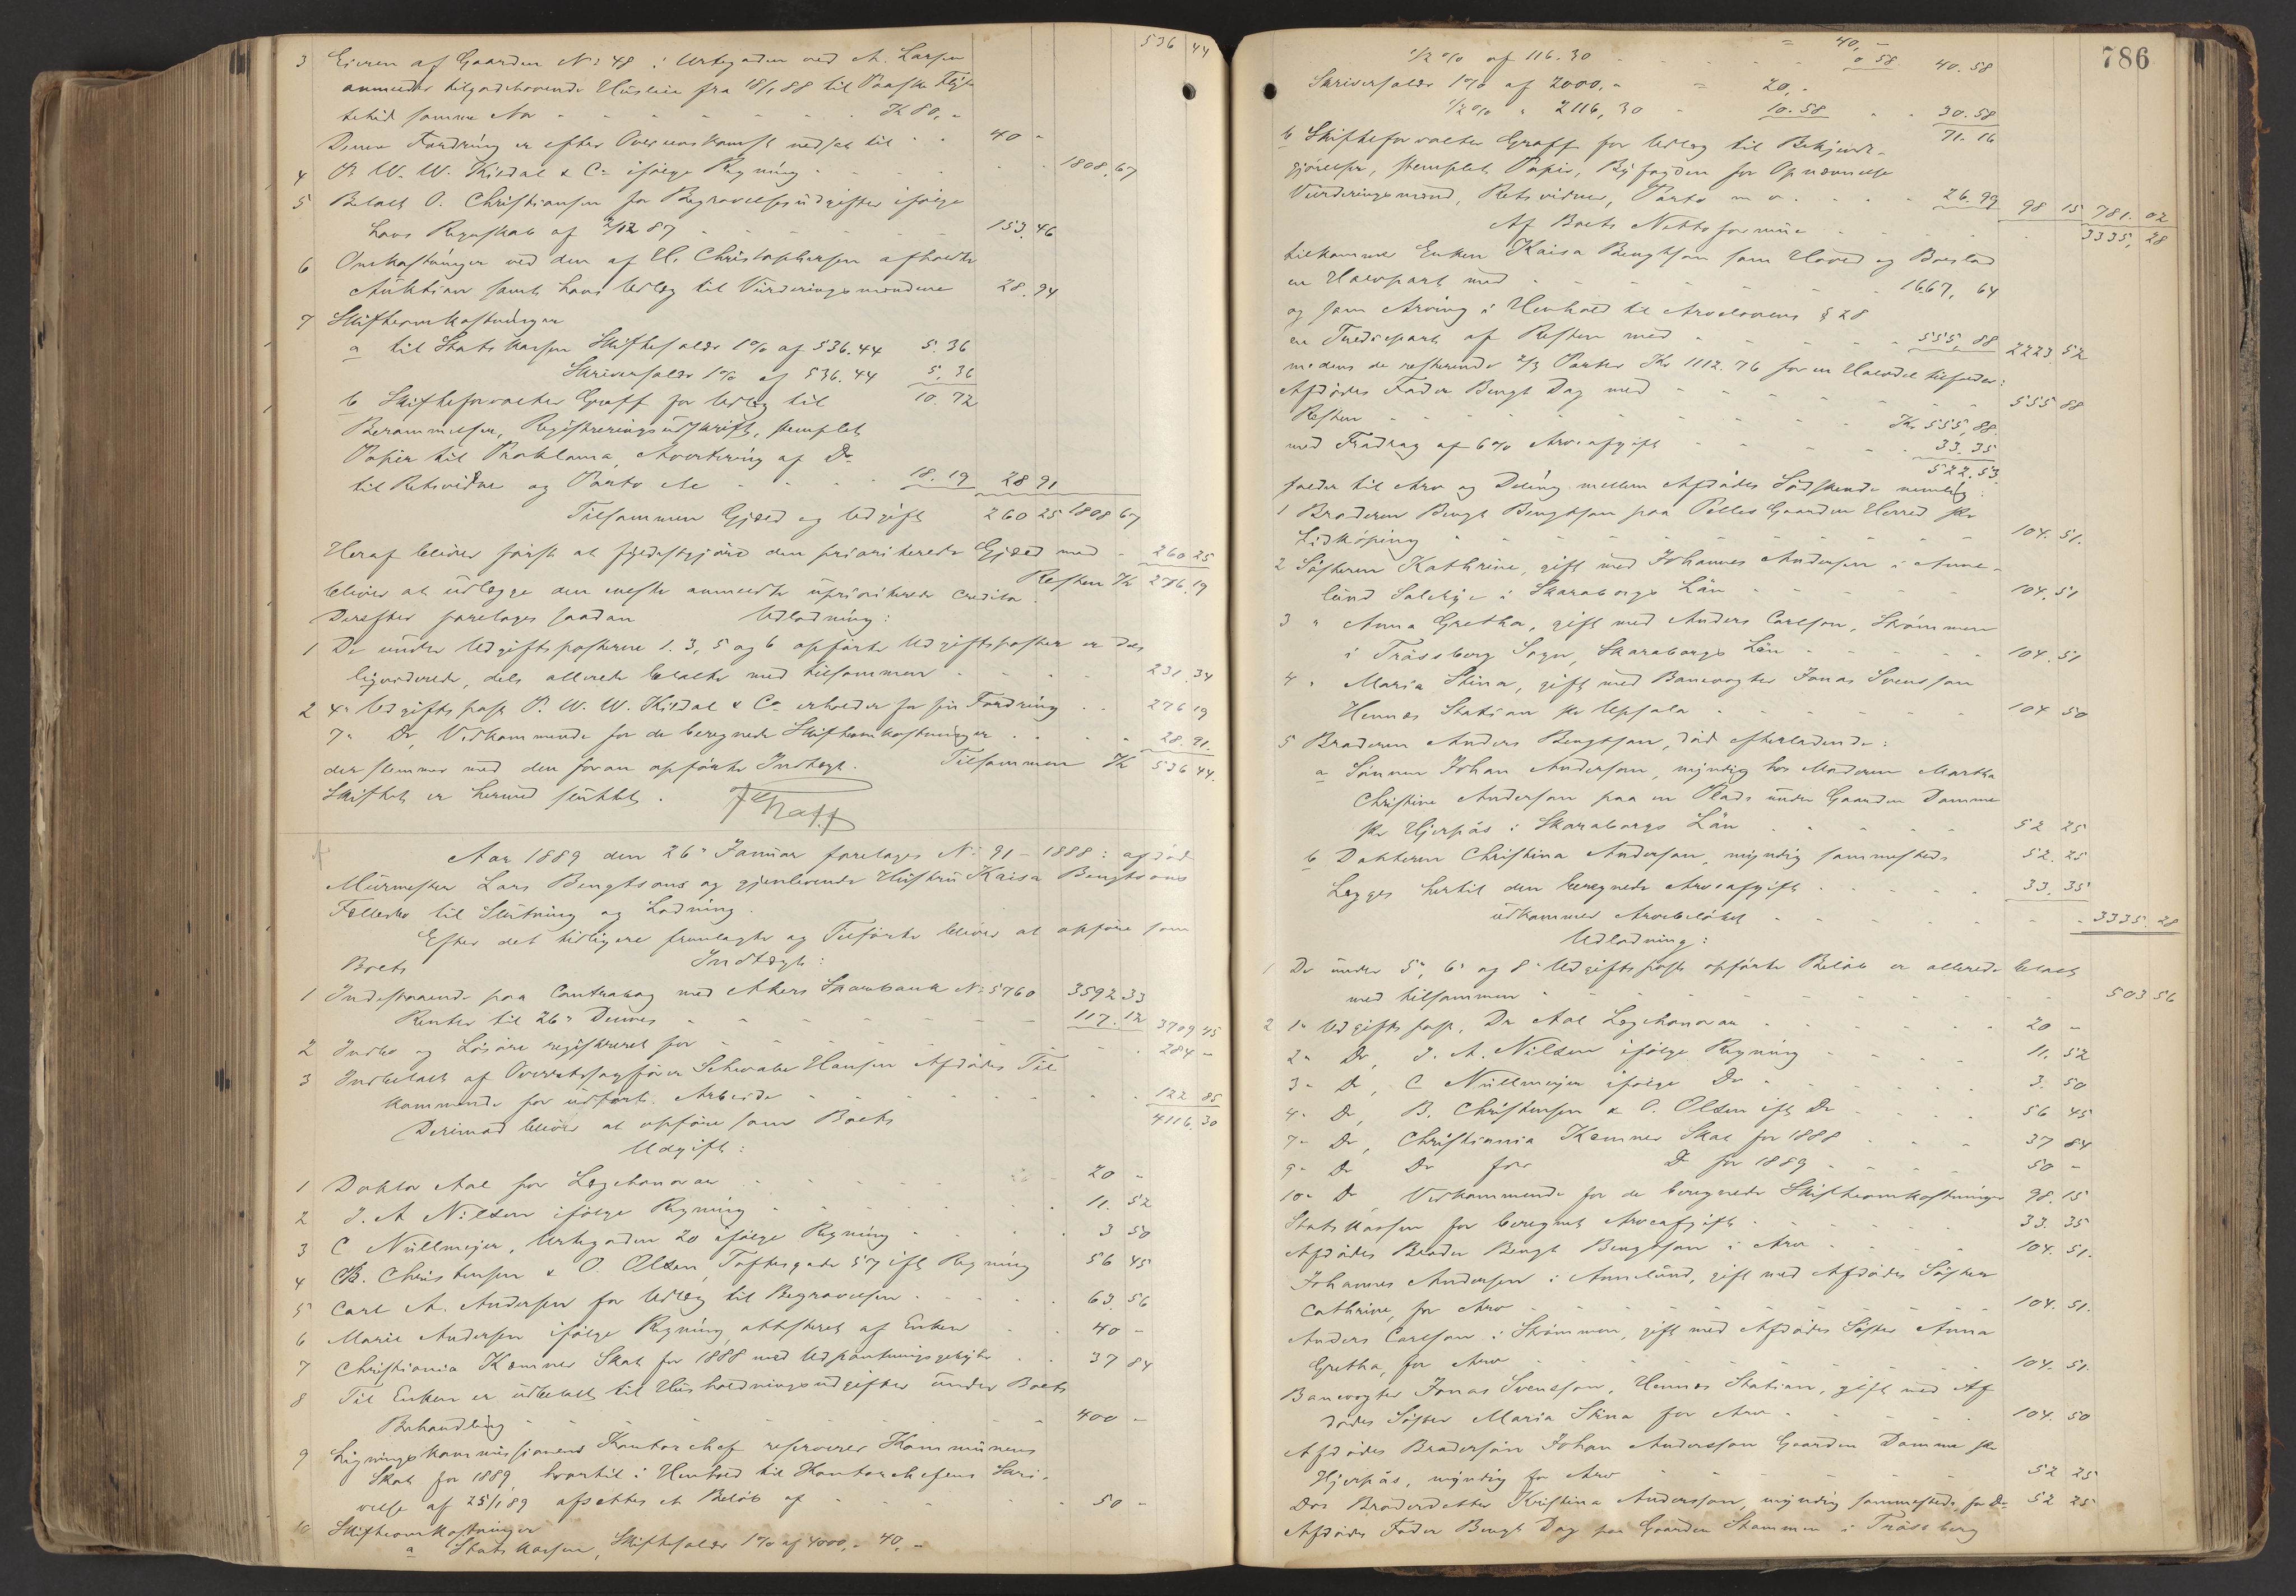 536 44
3 Eieren af Gaarden No 48 i Urtegaden ved A. Larsen
anmelder tilgodehavende Husleie fra 18/1 88 til Paaske Flyt-
tetid samme Aar - - - Kr 80,-
Denne Fordring er efter Overenskomst nedsat til - - 40 -
4 P. W. W. Kildal & Co ifølge Regning - - - 1808,67
5 Betalt O. Christiansen for Begravelsesudgifter ifølge
hans Regnskab af 2/12 87 - - - 153.46
6 Omkostninger ved den af H. Christophersen afholdte
Auktion samt hans Udlæg til Vurderingsmændene 28.94
7 Skifteomkostninger
a til Statskassen Skiftesalær 1% af 536.44 5.36
Skriversalær 1% af 536.44 5.36
10.72
b Skifteforvalter Graff for Udlæg til
Berammelser, Registreringsudskrift, stemplet
Papir til Proklama, Avertering af Do
til Retsvidne og Porto etc - - 18.19 28 91
Tilsammen Gjæld og Udgift 260 25 1808 67
Heraf bliver først at fyldestgjøre den prioriterede Gjæld med - 260 25
Resten Kr 276.19
bliver at udlægge den eneste anmeldte uprioriterede Creditor.
Derefter foretages saadan Udlodning:
1 De under Udgiftsposterne 1. 3, 5 og 6 opførte Udgiftsposter er dels
liqviderede, dels allerede betalte med tilsammen - - 231.34
2 4" Udgiftspost P. W. W. Kildal & Co erholder for sin Fordring - - 276 19
7" Do, Vedkommende for de beregnede Skifteomkostninger - - 28.91.
Tilsammen Kr 536 44.
der stemmer med den foran opførte Indtægt.
Skiftet er hermed sluttet.
Graff
Aar 1889 den 26" Januar foretages No 91 - 1888: afdøde
Murmester Lars Bengtsons og gjenlevende Hustru Kaisa Bengtsons
Fællesbo til Slutning og Lodning.
Efter det tidligere fremlagte og Tilførte bliver at opføre som
Boets Indtægt:
1 Indestaaende paa Contrabog med Akers Sparebank No 5760 3592 33
Renter til 26" Dennes - - - 117.12 3709 45
2 Indbo og Løsøre registreret for - - - 284 -
3 Indbetalt af Overretssagfører Schwabe Hansen Afdødes Til-
kommende for udført Arbeide - - - 122 85
4116.30
Derimod bliver at opføre som Boets
Udgift:
1 Doktor Aal for Lægehonorar - - - 20 -
2 J. A. Nilsen ifølge Regning - - - 11.52
3 C Nüllmeyer, Urtegaden 20 ifølge Regning - - 3 50
4 B. Christensen & O. Olsen, Toftesgade 57 iflg Regning 56 45
5 Carl A. Andersen for Udlæg til Begravelsen - - - 63.56
6 Marie Andersen ifølge Regning attesteret af Enken - - 40 -
7 Christiania Kæmner Skat for 1888 med Udpantningsgebyhr - - 37 84
8 Til Enken er udbetalt til Husholdningsudgifter under Boets
Behandling - - - 400 -
9 Ligningskommissionens Kontorchef reserverer Kommunens
Skat for 1889, hvortil i Henhold til Kontorchefens Skri-
velse af 25/1 89 afsættes et Beløb af - - - 50 -
10 Skifteomkostninger
a Statskassen, Skiftesalær 1% af 4000,- 40,-
786
= 40,-
1/2 % af 116.30 - - - 0 58 40.58
Skriversalær 1% af 2000,- = 20,-
1/2 % " 2116,30 - 10.58 - - 30.58
71.16
b Skifteforvalter Graff for Udlæg til Bekjendt-
gjørelser, stemplet Papir, Byfogden for Opnævnelse
Vurderingsmænd, Retsvidner, Porto m v. - - - 26.99 98 15 781.02
Af Boets Nettoformue - - - 3335,28
tilkommer Enken Kaisa Bengtson som Hoved og Boeslod
en Halvpart med - - - 1667,64
og som Arving i Henhold til Arvelovens § 28
en Trediepart af Resten med - - - 555,88 2223 52
medens de resterende 2/3 Parter Kr 1112.76 for en Halvdel tilfalder:
Afdødes Fader Bengt Dag med - - - 555 88
Resten - - - Kr 555,88.
med Fradrag af 6% Arveafgift - - - 33.35
522.53.
falder til Arv og Deling mellem Afdødes Sødskende nemlig:
1 Broderen Bengt Bengtson paa Pelles Gaarden Herred pr
Lidköping - - - 104.51.
2 Søsteren Kathrine, gift med Johannes Andersen i Anne-
lund Saleby i Skaraborgs Län - - - 104.51
3 " Anna Gretha, gift med Anders Carlson, Strømmen
i Trässberg Sogn, Skaraborgs Län - - - 104.51
4 " Maria Stina, gift med Banevogter Jonas Svensson
Hennes Station pr Upsala - - - 104 50
5 Broderen Anders Bengtson, død efterladende:
a Sønnen Johan Anderson, myndig hos Moderen Martha
Christine Anderson paa en Plads under Gaarden Damme
pr Hjerpås i Skaraborgs Län - - - 52 25
b Datteren Christina Anderson, myndig sammesteds 52.25
Lægges hertil den beregnede Arveafgift - - - 33.35
udkommer Arvebeløbet - - - 3335.28
Udlodning:
1 De under 5", 6" og 8" Udgiftspost opførte Beløb er allerede betalt
med tilsammen - - - 503 56
2 1" Udgiftspost, Dr Aal Lægehonorar - - - 20 -
2" Do, J. A. Nilsen ifølge Regning - - - 11.52
3" Do, C Nüllmeyer ifølge Do - - - 3.50
4" Do, B. Christensen & O. Olsen iflg Do - - - 56 45
7" Do, Christiania Kæmner Skat for 1888 - - - 37 84
9" Do Do for Do for 1889 - - - 50 -
10" Do, Vedkommende for de beregnede Skifteomkostninger 98.15
Statskassen for beregnet Arveafgift - - - 33.35
Afdødes Broder Bengt Bengtson i Arv - - - 104.51.
Johannes Andersen i Annelund, gift med Afdødes Søster
Cathrine, for Arv - - - 104.51.
Anders Carlson i Strømmen, gift med Afdødes Søster Anna
Gretha, for Arv - - - 104.51.
Banevogter Jonas Svensson, Hennes Station, gift med Af-
dødes Søster Maria Stina for Arv - - - 104.50
Afdødes Brodersøn Johan Andersson Gaarden Damme pr
Hjerpås, myndig for Arv - - - 52 25
Dos Broderdatter Kristina Andersson, myndig sammesteds, for Do 52 25
Afdødes Fader Bengt Dag paa Gaarden Stommen i Trässberg